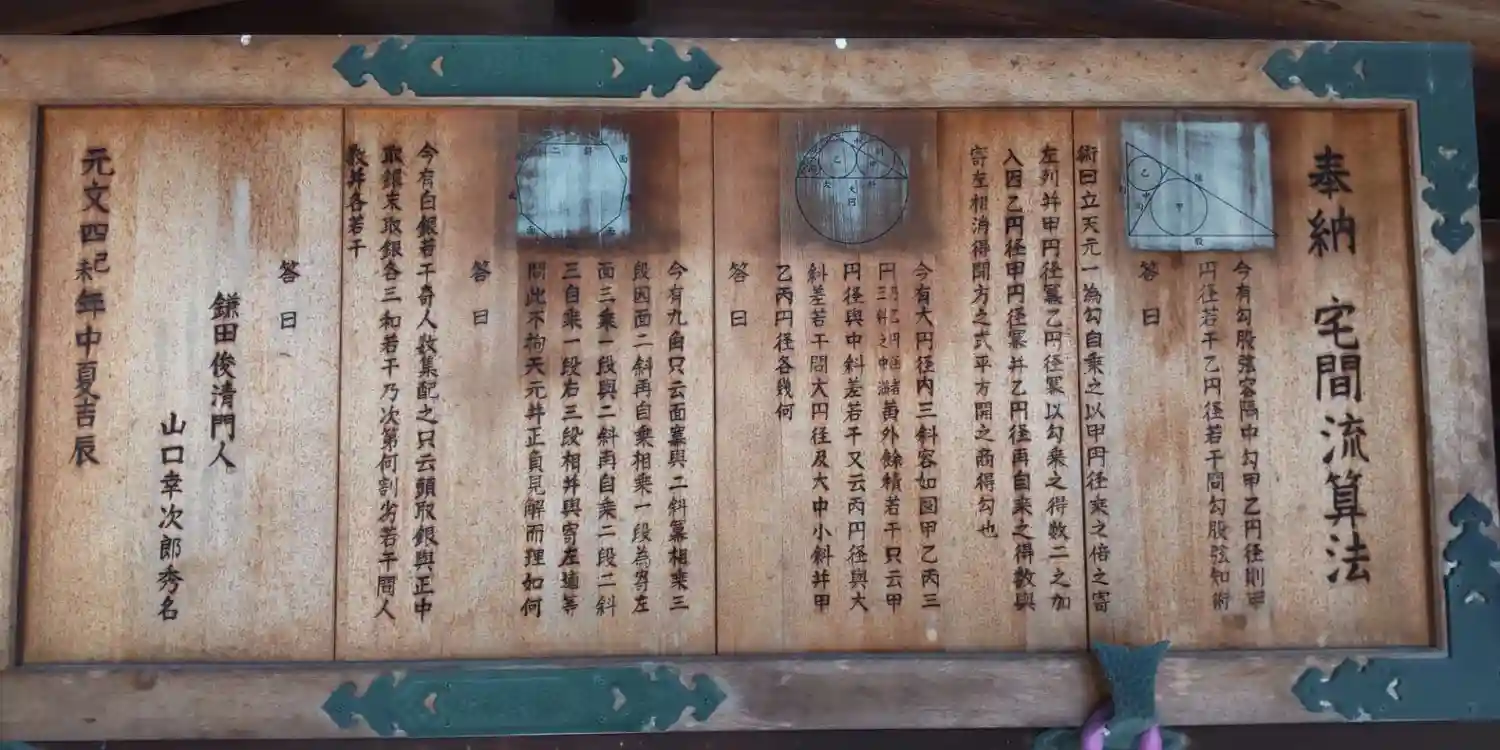 奉納 宅間流算法
今有勾股弦容隔中勾甲乙円径則甲
円径若干乙円径若干問勾股弦知術
答曰
術曰立天元一為勾自乗之以甲円径乗之倍之寄
左列并甲円径冪乙円径冪以勾乗之得数二之加
入因乙円径甲円径冪并乙円径再自乗之得数與
寄左相消得開方之式平方開之商得勾也
今有大円径内三斜容如図甲乙丙三
円
黄外餘積若干只云甲
円径與中斜差若干又云丙円径與大
斜差若干問大円径及大中小斜并甲
乙丙円径各幾何
答曰
今有九角只云面冪與二斜冪相乗三
段因面二斜再自乗相乗一段為寄左
面三乗一段與二斜再自乗二段二斜
三自乗一段右三段相并與寄左
等
問此不拘天元并正負見解而理如何
答曰
今有白銀若干奇人数集配之只云頭取銀與正中
取銀末取銀各三和若干乃次第何割劣若干問人
数并各若干
答曰
鎌田俊清門人
山口幸次郎秀名
元文四祀未年中夏吉辰